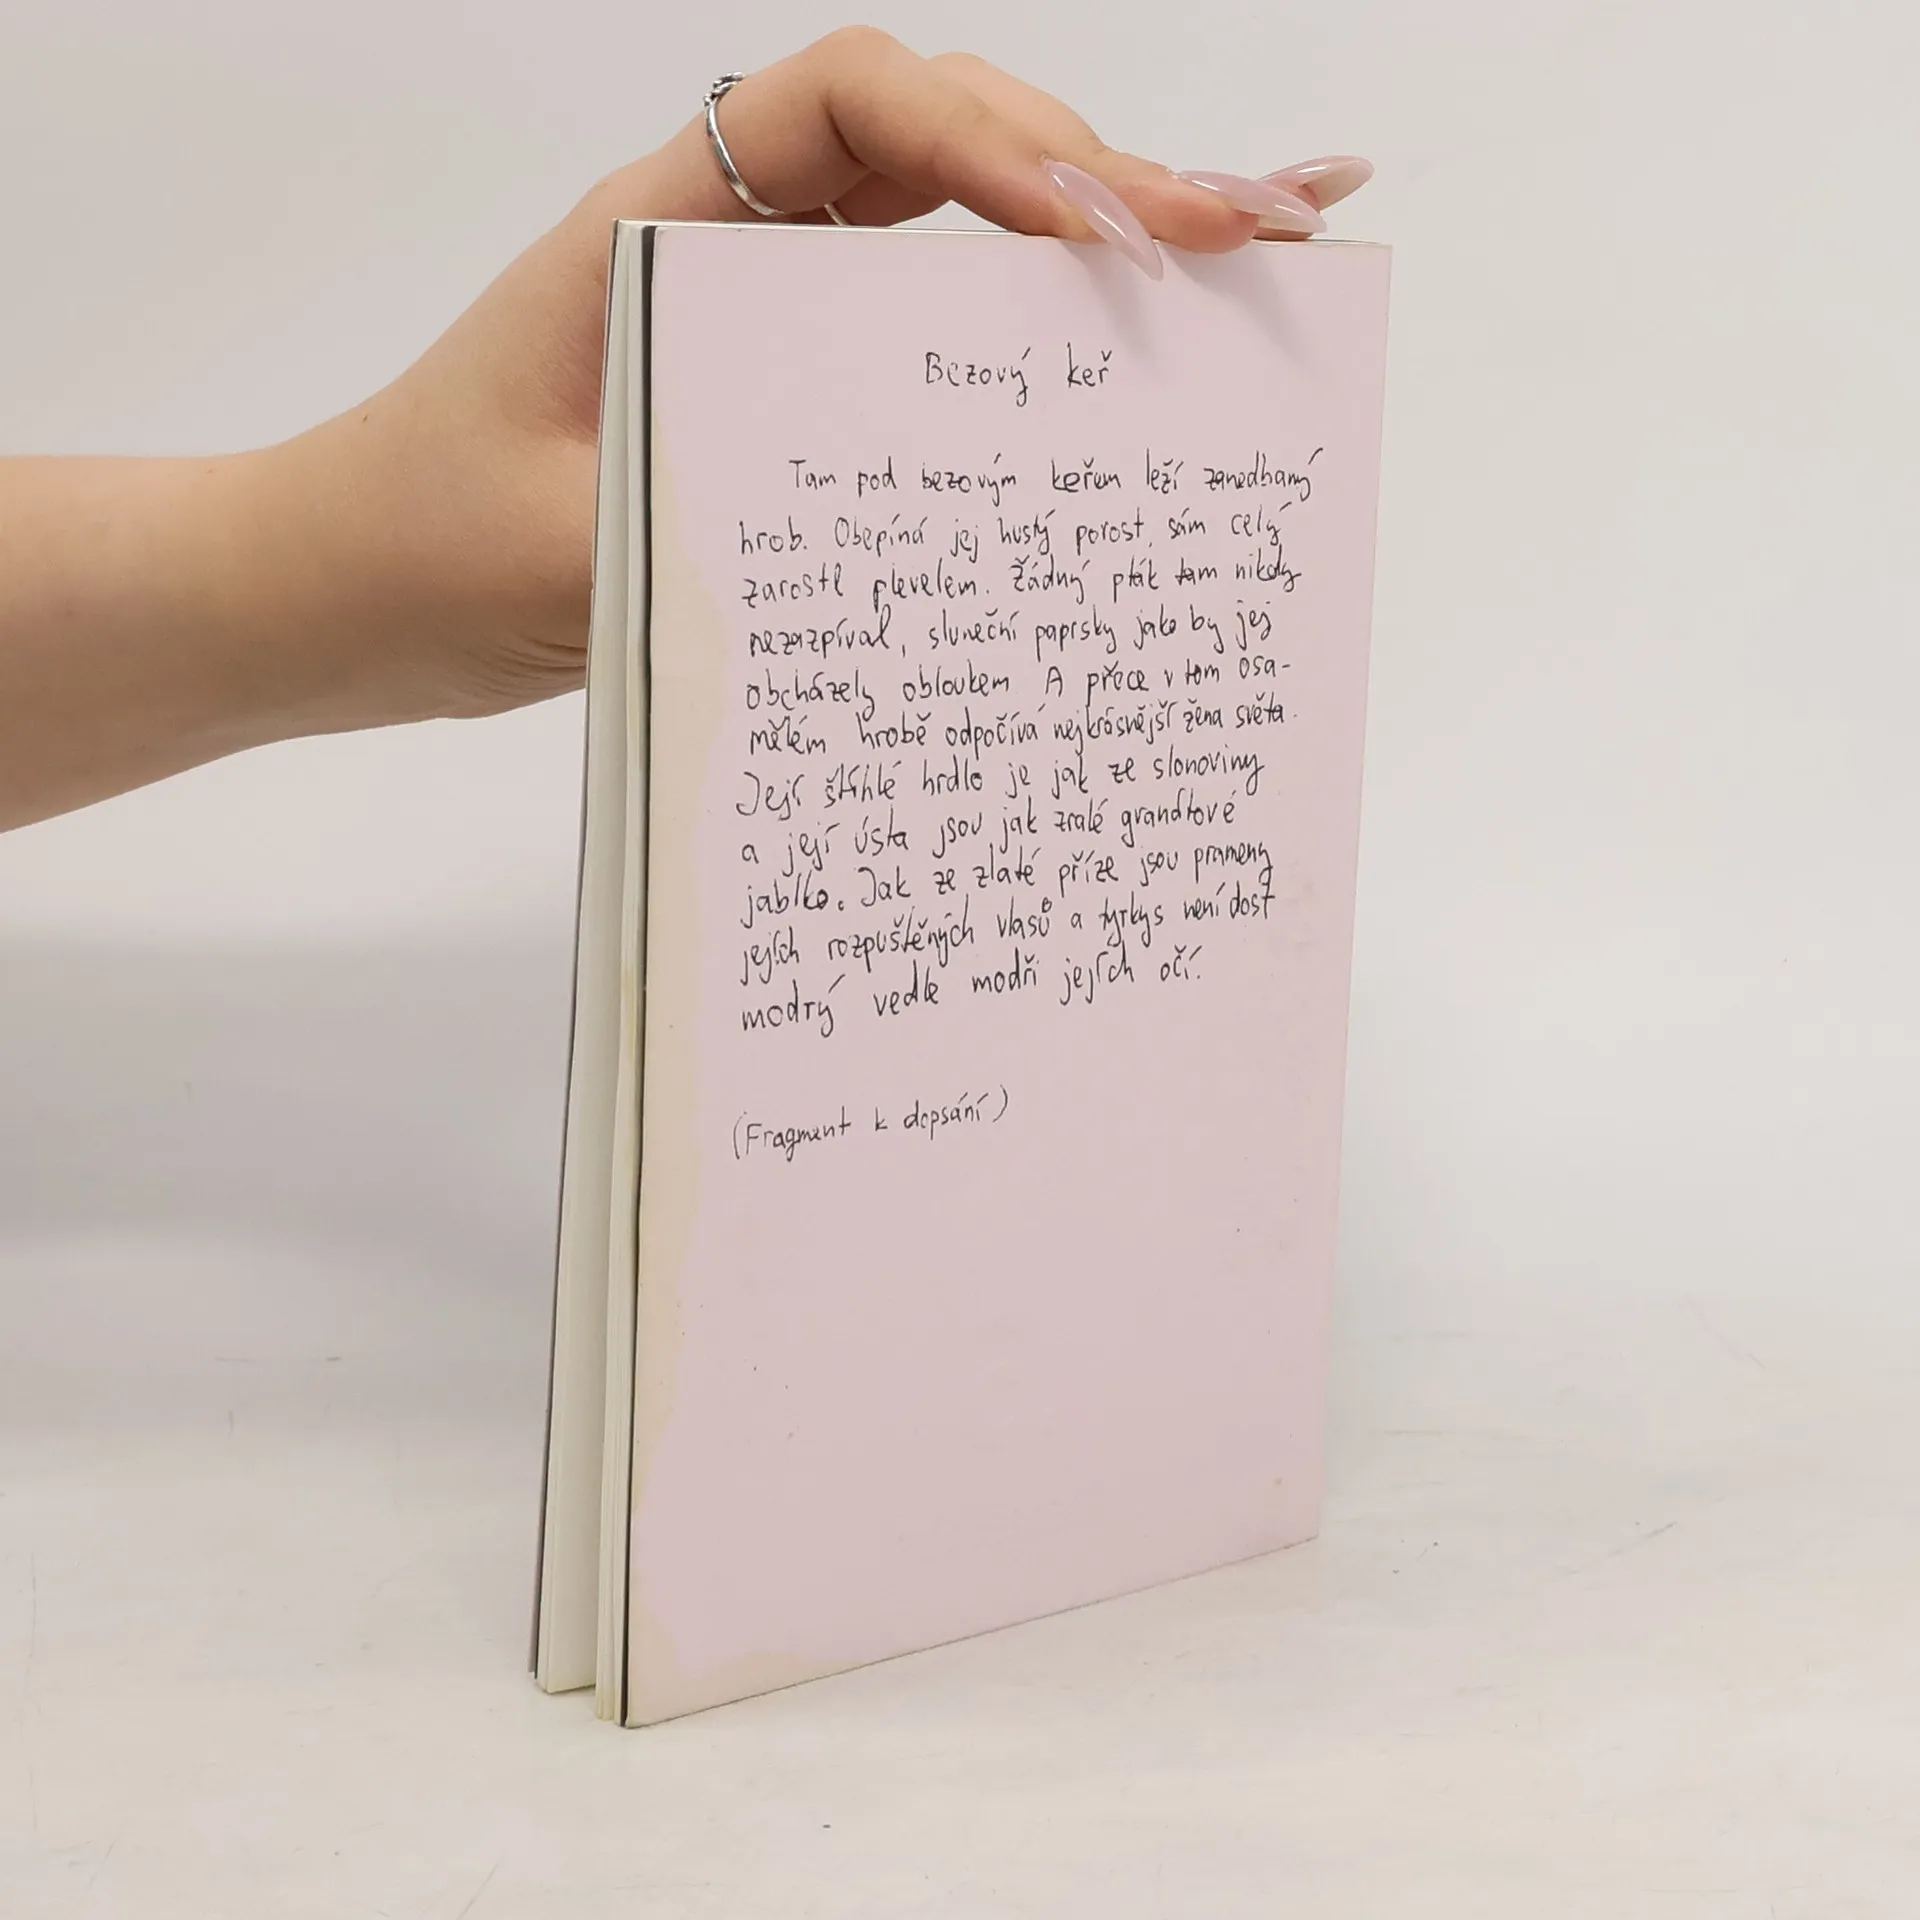 Bezový keř
Tam pod bezovým keřem leží zanedbaný
hrob. Obepíná jej hustý porost, sám celý
zarostl plevelem. Žádný pták tam nikdy
nezazpíval, sluneční paprsky jako by jej
obcházely obloukem. A přece v tom osa-
mělém hrobě odpočívá nejkrásnější žena světa.
Její štíhlé hrdlo je jak ze slonoviny
a její ústa jsou jak zralé granátové
jablko. Jak ze zlaté příze jsou prameny
jejích rozpuštěných vlasů a tyrkys není dost
modrý vedle modři jejích očí.
(Fragment k dopsání)